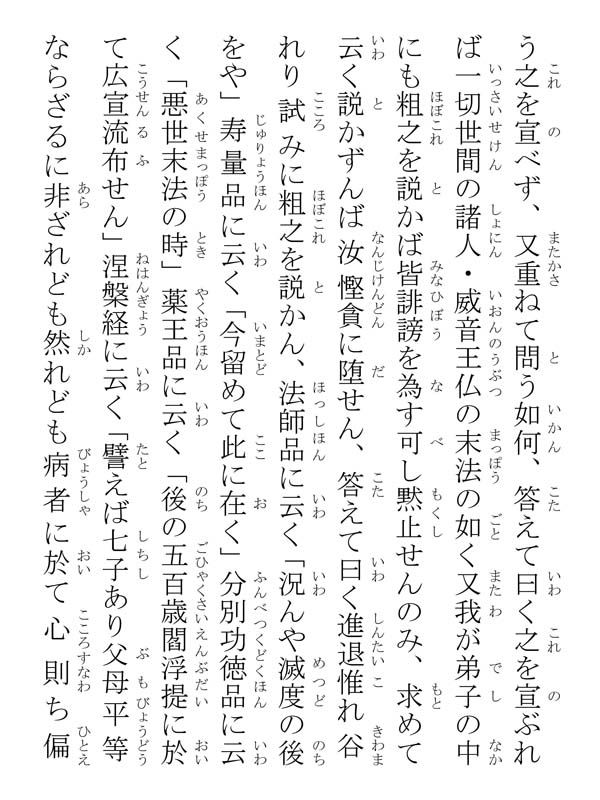 う之を宣べず、又重ねて問う如何、答えて曰く之を宣ぶれ
ば一切世間の諸人・威音王仏の末法の如く又我が弟子の中
にも粗之を説かば皆誹謗を為す可し黙止せんのみ、求めて
云く説かずんば汝慳貪に堕せん、答えて曰く進退惟れ谷
れり試みに粗之を説かん、法師品に云く「況んや滅度の後
をや」寿量品に云く「今留めて此に在く」分別功徳品に云
く「悪世末法の時」薬王品に云く「後の五百歳閻浮提に於
て広宣流布せん」涅槃経に云く「譬えば七子あり父母平等
ならざるに非ざれども然れども病者に於て心則ち偏